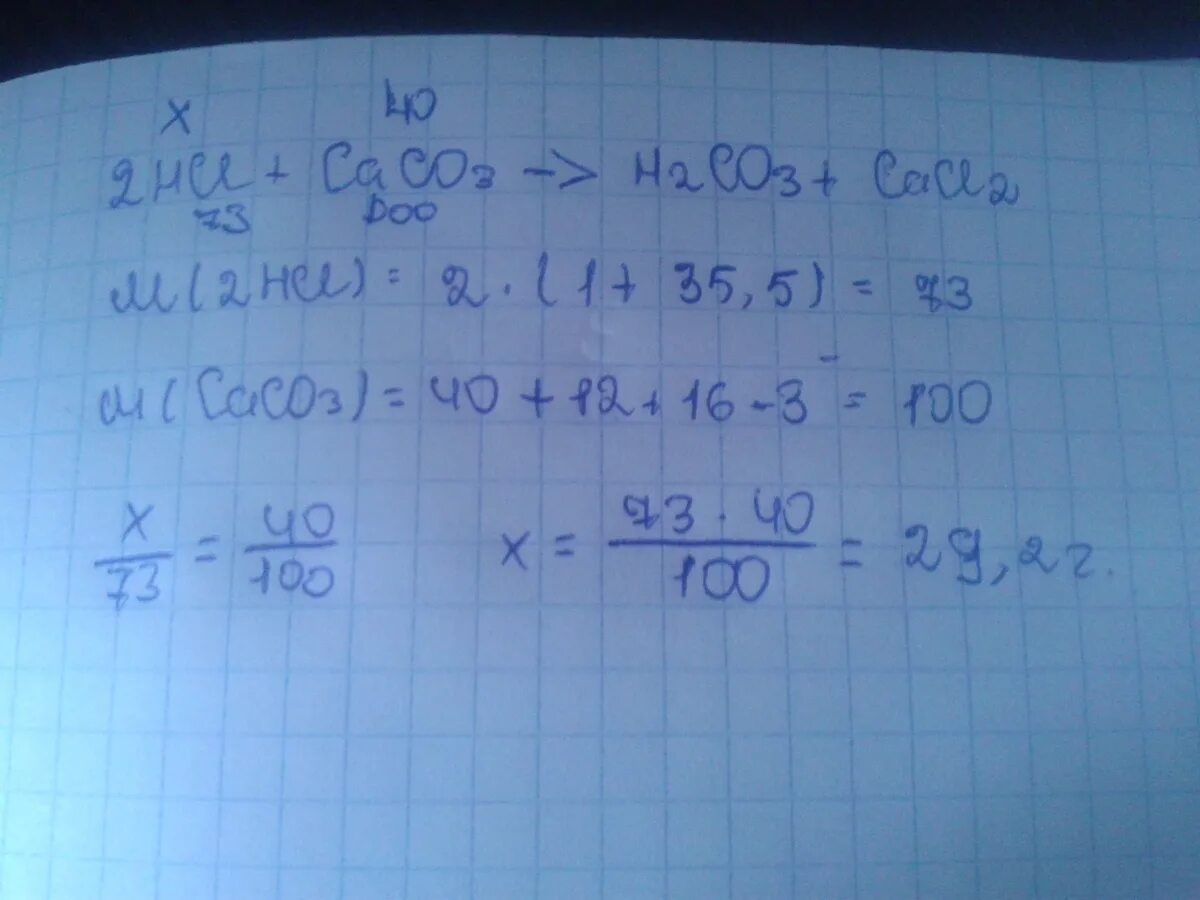 x 40
2HCl + CaCO3 -> H2CO3 + CaCl2
73 100
M(2HCl) = 2 · (1 + 35,5) = 73
M(CaCO3) = 40 + 12 + 16 - 3 = 100
x/73 = 40/100 x = 73 · 40/100 = 29,2 г.